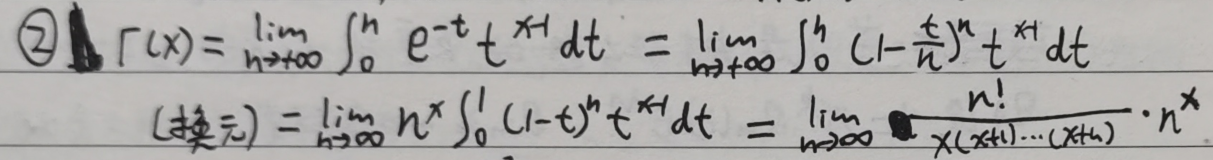 ② Γ(x) = lim_{n→+∞} ∫₀ⁿ e^{-t} t^{x-1} dt = lim_{n→+∞} ∫₀ⁿ (1-t/n)ⁿ t^{x-1} dt
(换元) = lim_{n→∞} n^x ∫₀¹ (1-t)ⁿ t^{x-1} dt = lim_{n→∞} n!/(x(x+1)⋯(x+n)) · n^x